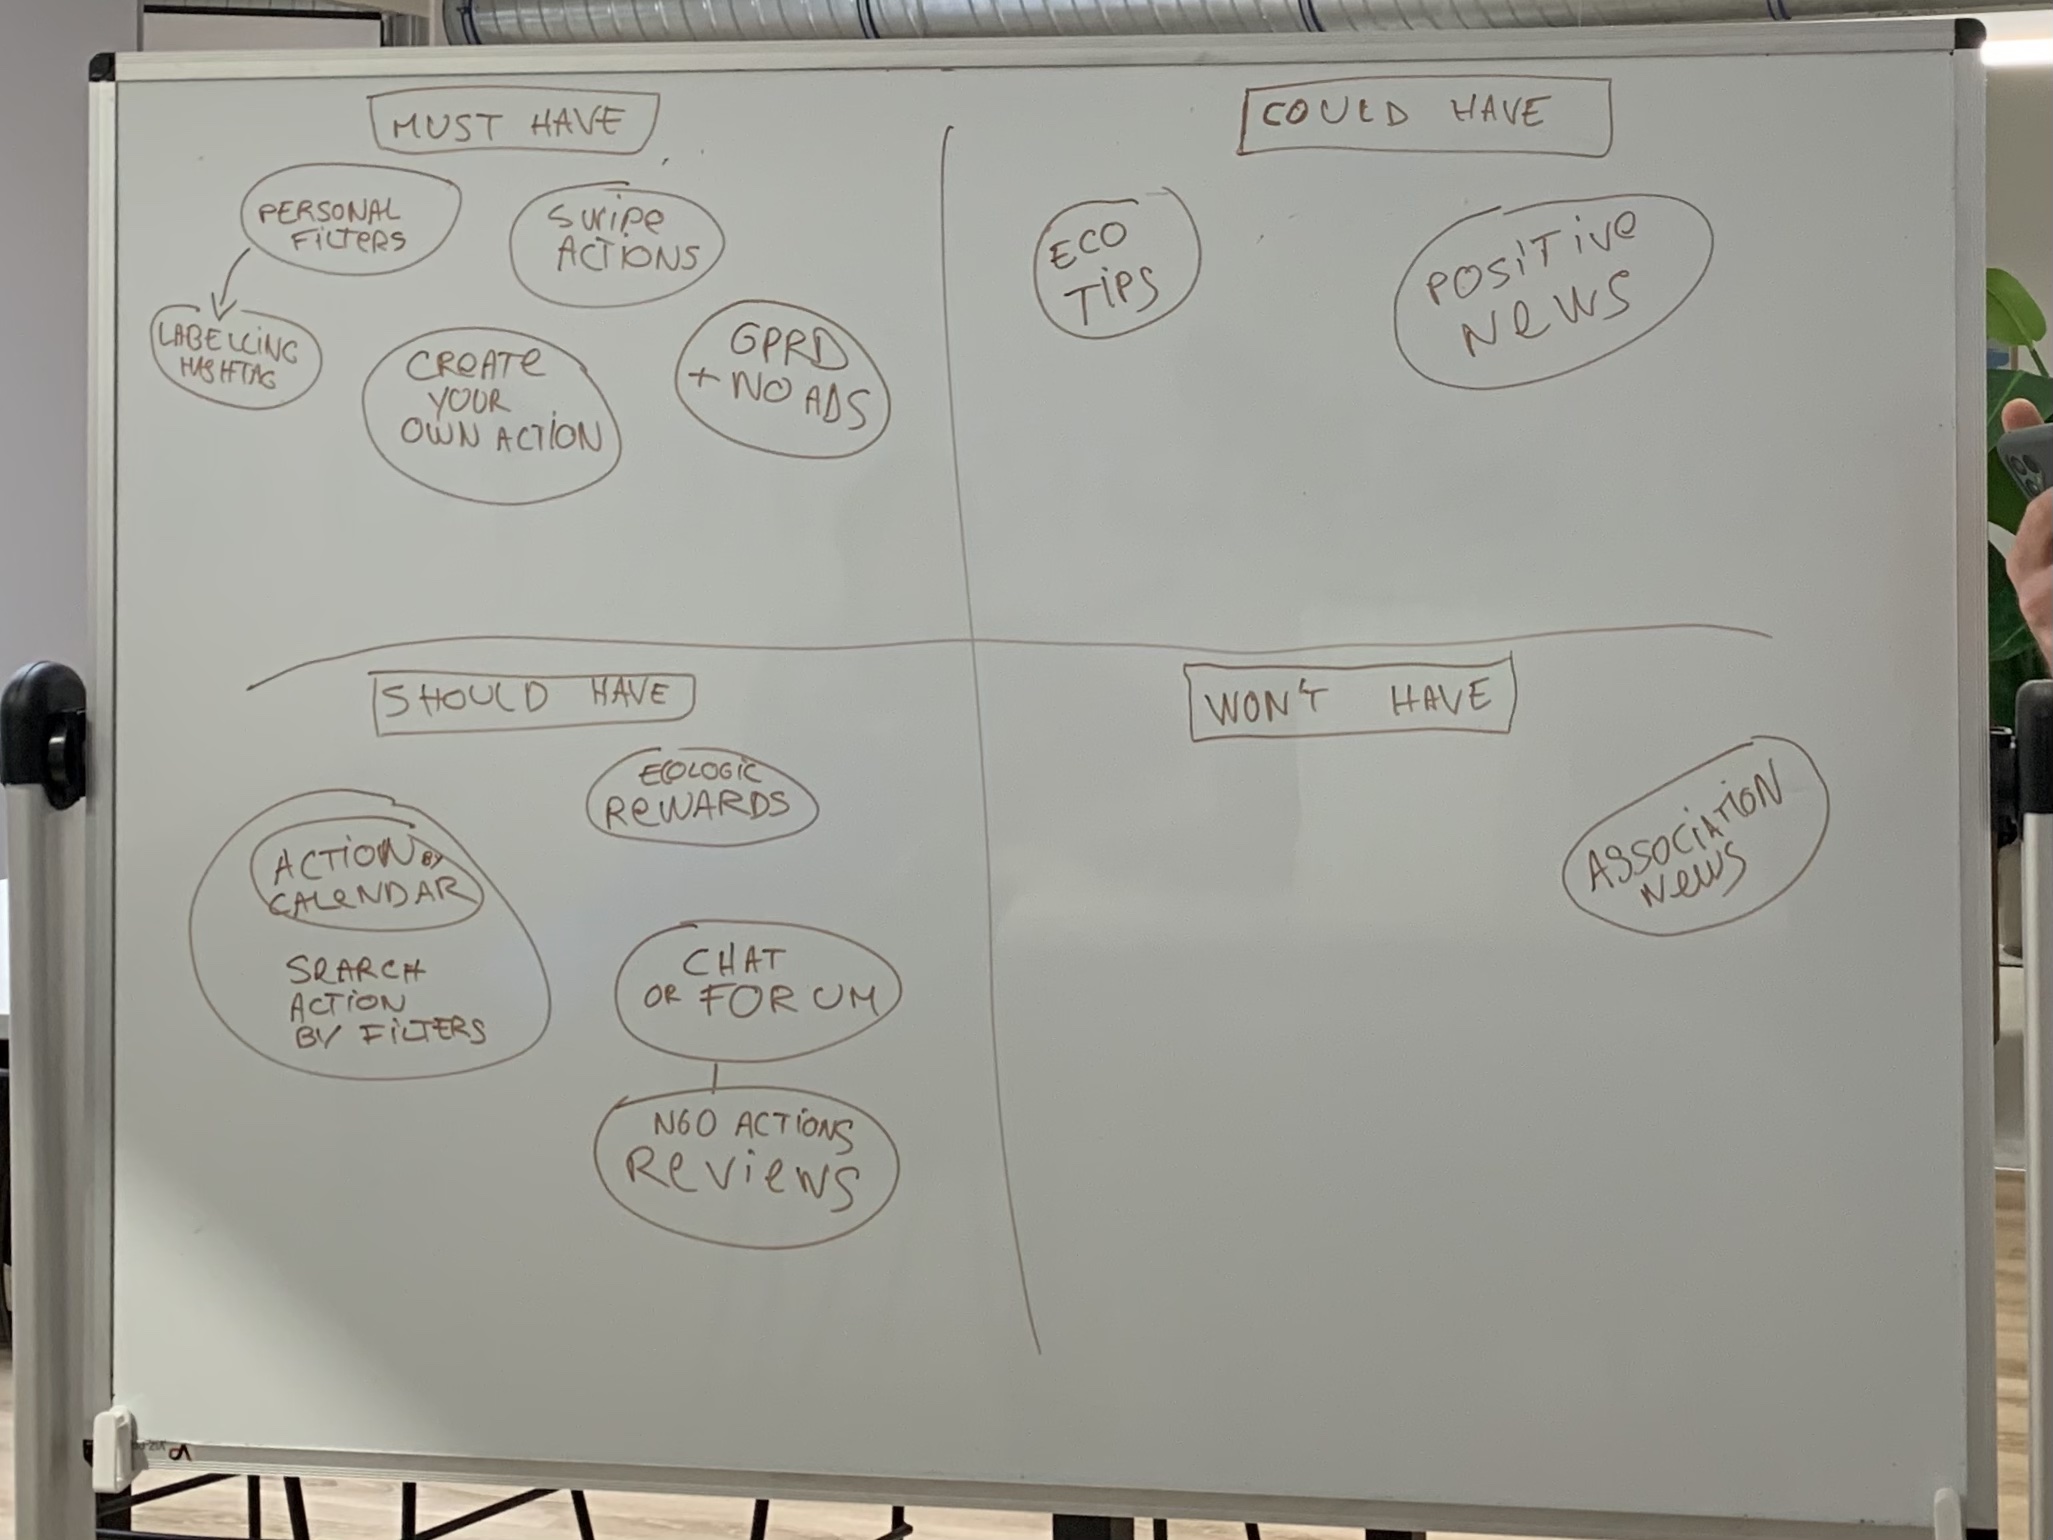 MUST HAVE
PERSONAL
FILTERS
SWIPE
ACTIONS
LABELLING
HASHTAG
CREATE
YOUR
OWN ACTION
GPRD
+ NO ADS
COULD HAVE
ECO
TIPS
POSITIVE
NEWS
SHOULD HAVE
ECOLOGIC
REWARDS
ACTION BY
CALENDAR
SEARCH
ACTION
BY FILTERS
CHAT
OR FORUM
NGO ACTIONS
REVIEWS
WON'T HAVE
ASSOCIATION
NEWS